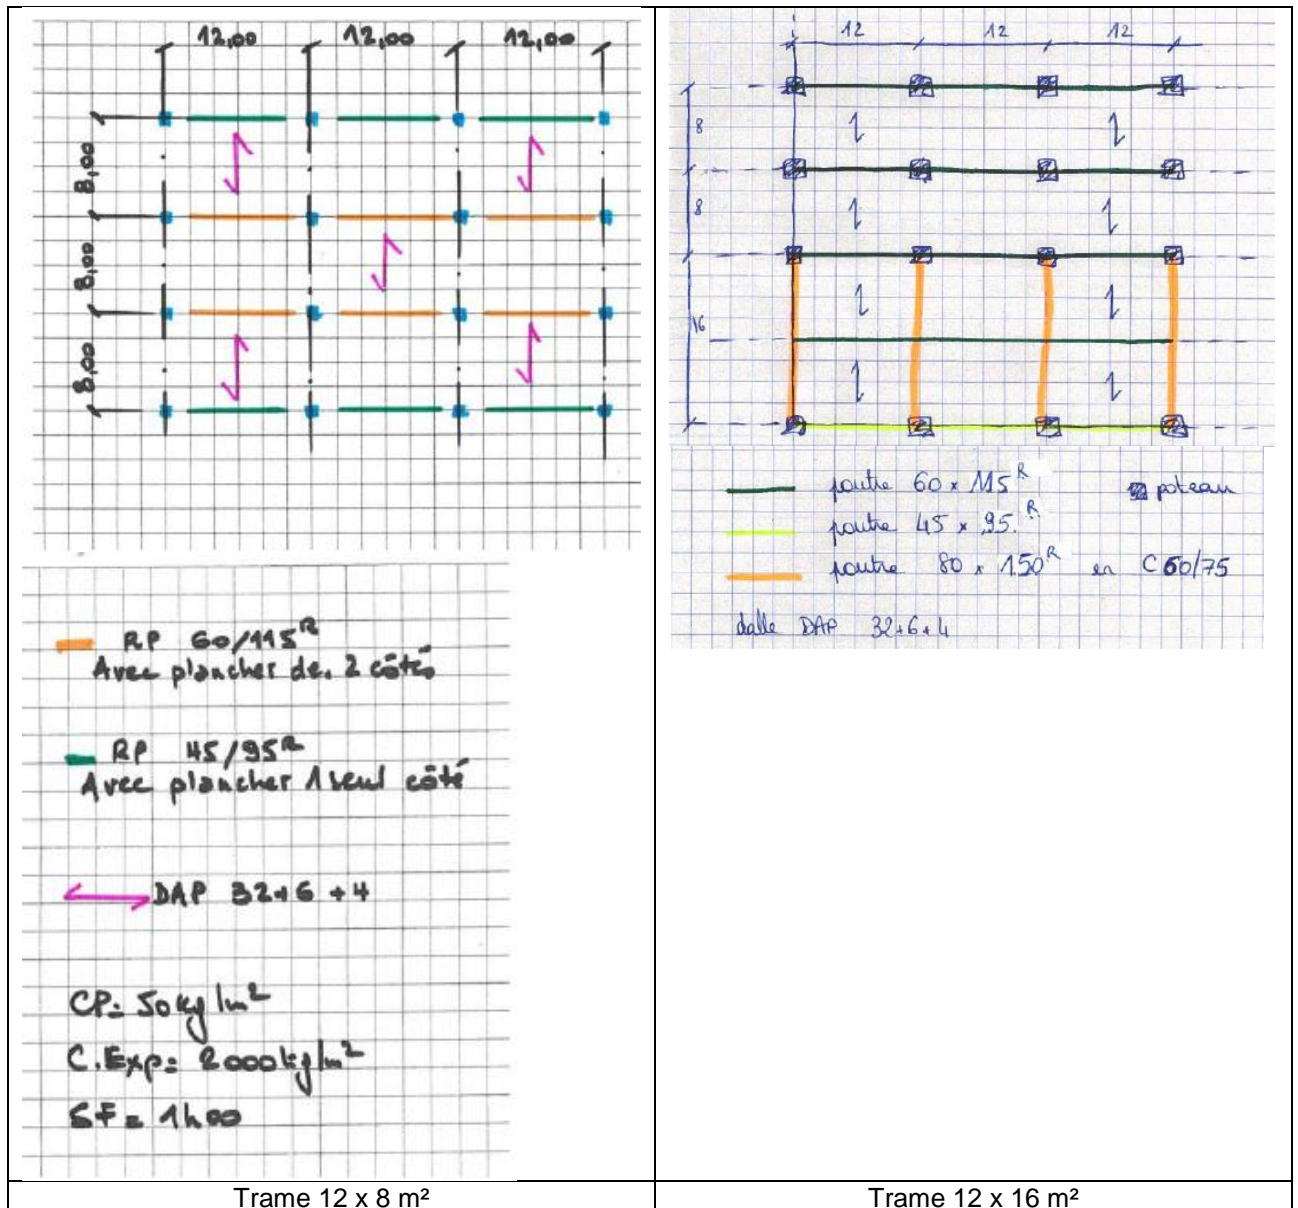 12,00 12,00 12,00
8,00
8,00
8,00
RP 60/115ᴿ
Avec plancher de. 2 côtés
RP 45/95ᴿ
Avec plancher 1 seul côté
DAP 32+6+4
CP= 50 kg/m²
C.Exp= 2000kg/m²
SF= 1h00
Trame 12 x 8 m²
12 12 12
8
8
16
poutre 60 x 115ᴿ
poteau
poutre 45 x 95.ᴿ
poutre 80 x 150ᴿ en C60/75
dalle DAP 32+6+4
Trame 12 x 16 m²